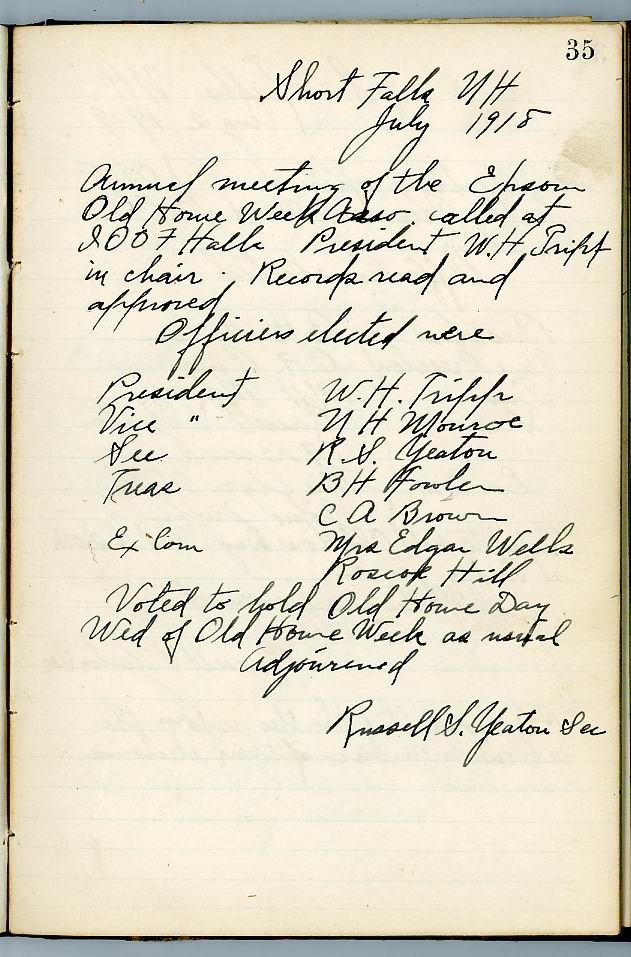 35
Short Falls NH
July 1918
Annual meeting of the Epsom
Old Home Week Asso. called at
I.O.O.F Halls President W.H Tripp
in chair. Records read and
approved
Officers elected were
President W.H. Tripp
Vice " N H Monroe
Sec R.S. Yeaton
Treas BH Fowler
C A Brown
Ex Com Mrs Edgar Wells
Roscoe Hill
Voted to hold Old Home Day
Wed of Old Home Week as usual
Adjourened
Russell S. Yeaton Sec